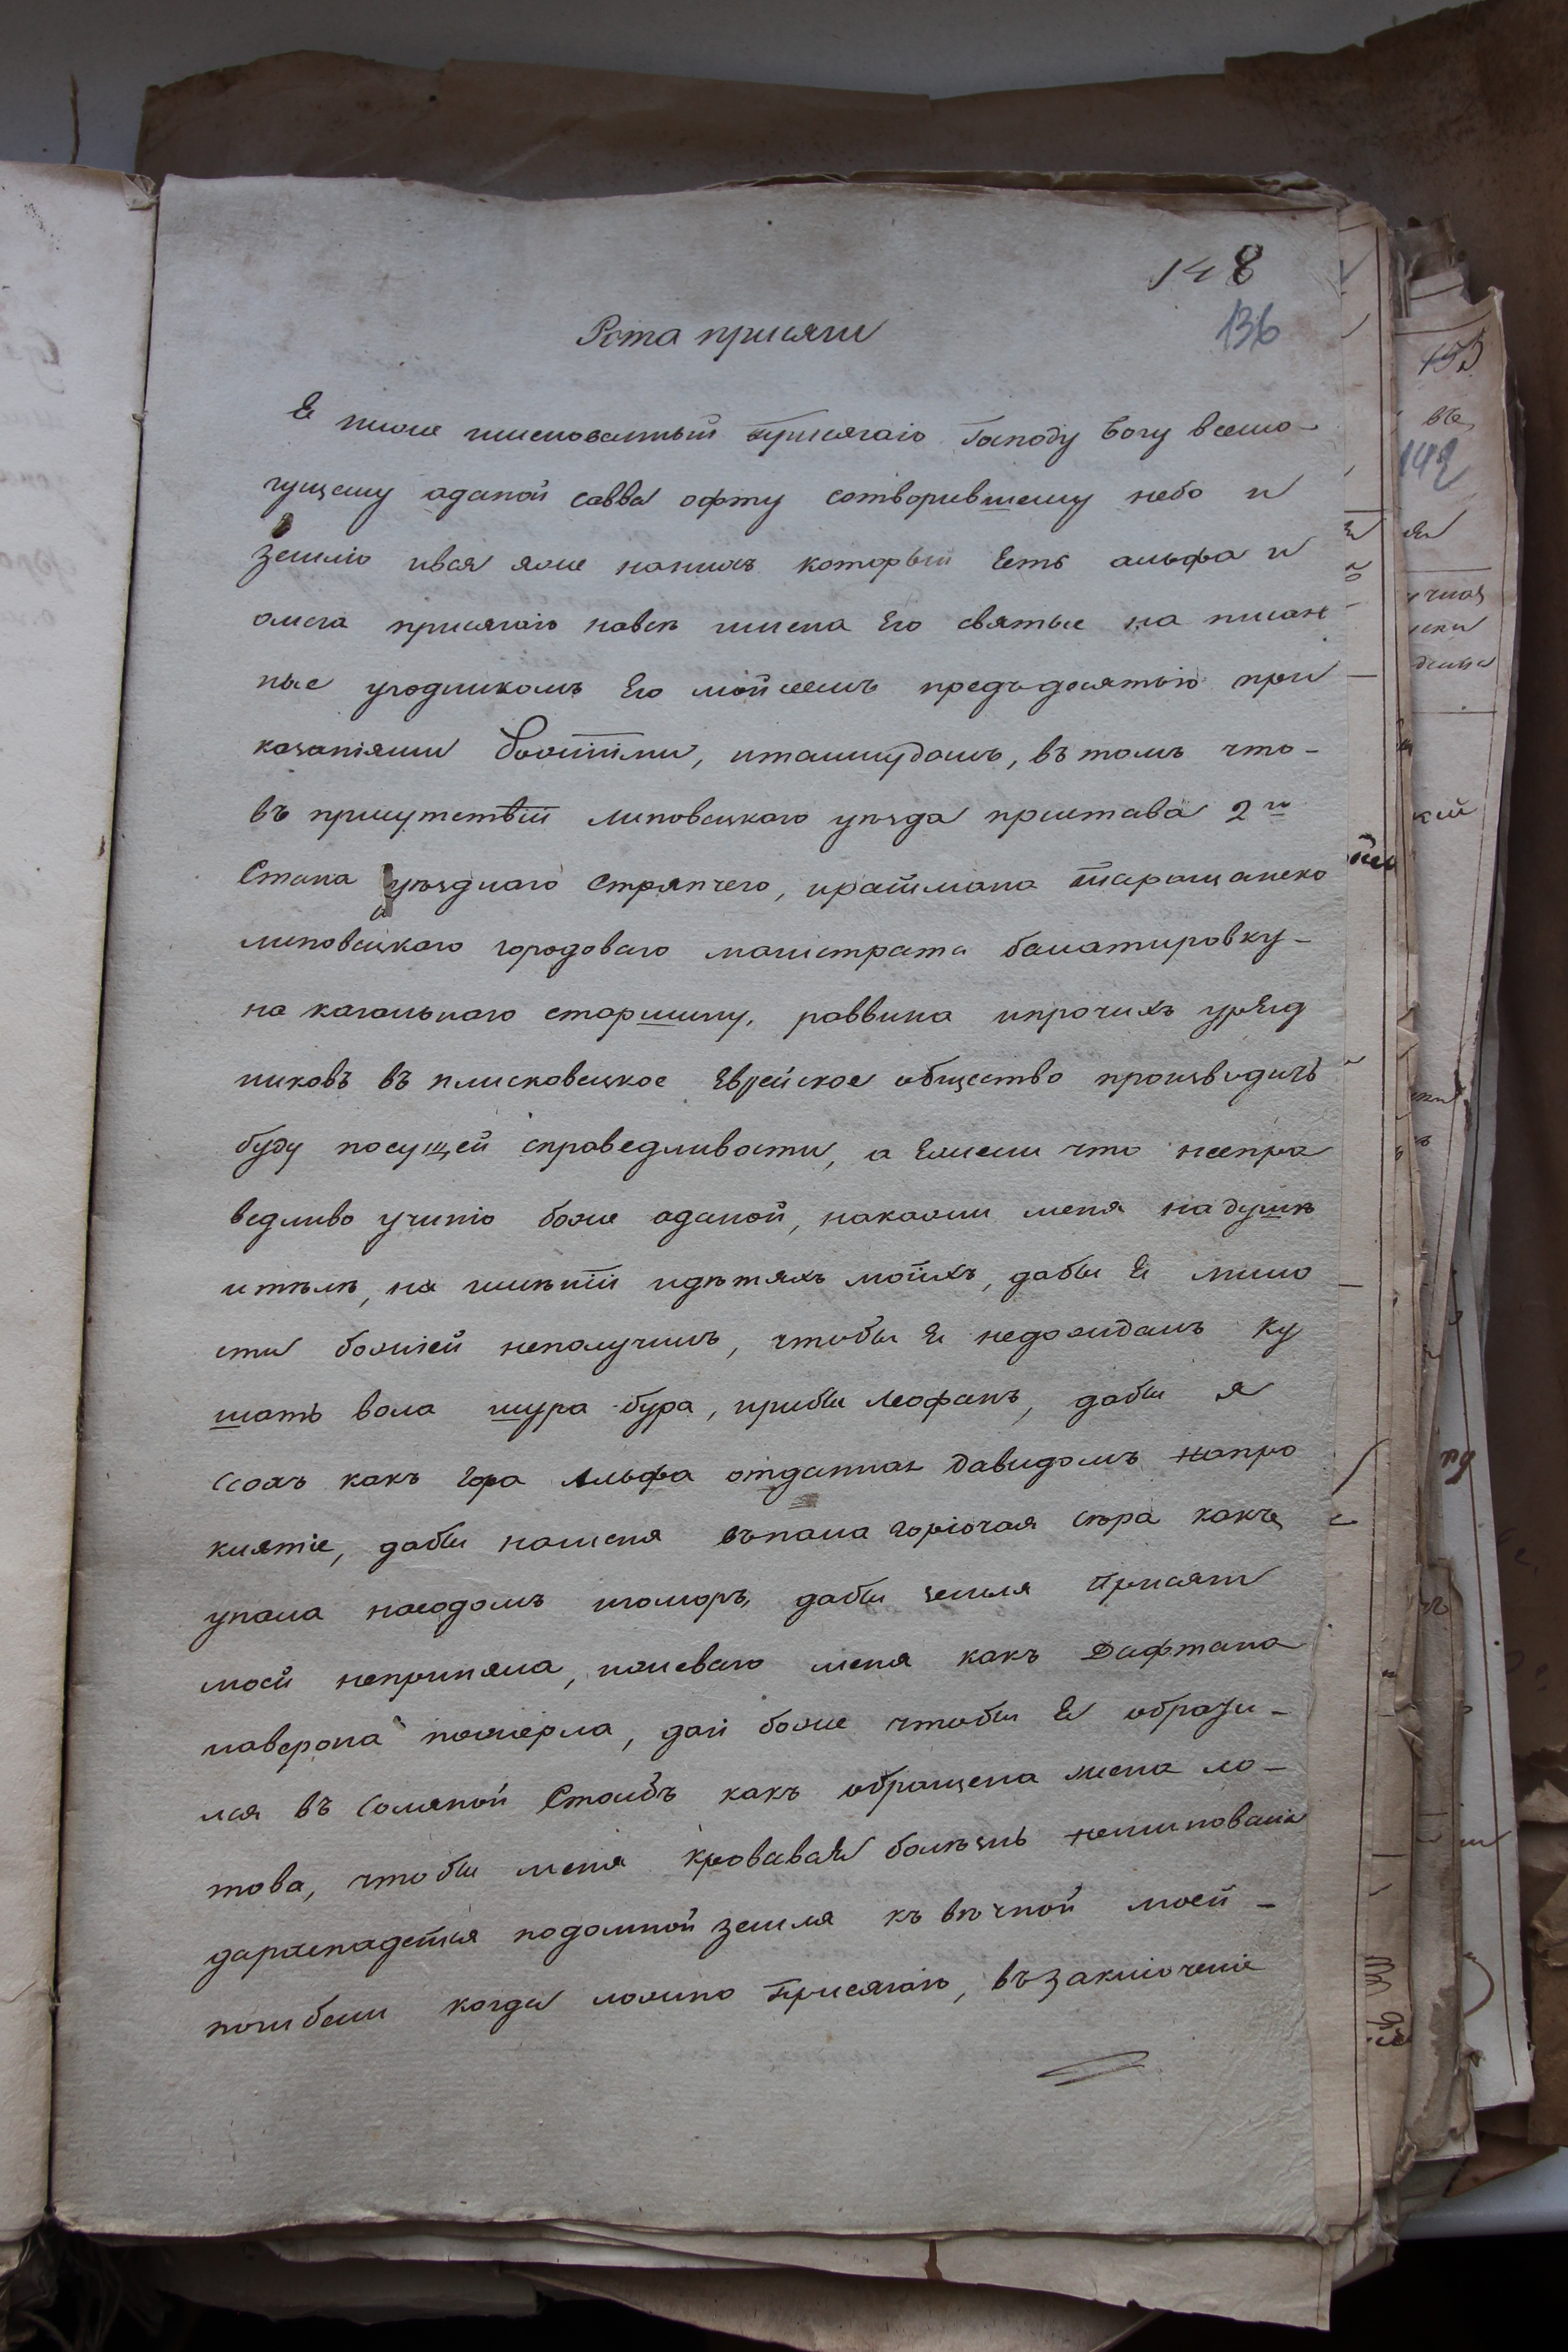 148
136
Рота присяги
Я ниже именованный Присягаю Господу Богу всемо-
гущему аданой савва офту сотворившему небо и
землю ився яже наних который Есть альфа и
омега присягаю навсѣ имена Его святые на писан
ные угодником Его мойсеемъ предъдесятью при
казаніями Божіими, италмудомъ, въ томъ что-
въ присутствіи липовецкаго уѣзда пристава 2го
Стана уѣзднаго Стряпчего, иратмана таращанско
липовецкаго городоваго магистрата балатировку-
на кагальнаго старшину, раввина ипрочихъ уряд
никовъ въ плисковецкое Еврейское общество производить
буду посущей справедливости, а Ежели что неспра
ведливо учиню боже аданой, накажи меня надушѣ
итѣлѣ, на имѣніи идѣтяхъ моихъ, дабы Я мило
сти божіей неполучилъ, чтобы Я недожидалъ ку
шать вола шура бура, ирыбы леофанъ, дабы я
ссохъ какъ гора Альфа отданная Давидомъ напро
клятіе, дабы наменя въпала горючая сѣра какъ
упала насодомъ игоморъ, дабы земля Присяги
моей неприняла, иживаго меня какъ Дафтана
иаверона пожерла, дай боже чтобы Я обрати-
лся въ Соляной Столбъ какъ обращена жена ло-
това, чтобы меня кровавая болѣзнь неминовала
дараспадется подомной земля къ вѣчной моей-
погибели когда ложно Присягаю, въ заключеніе
155
142